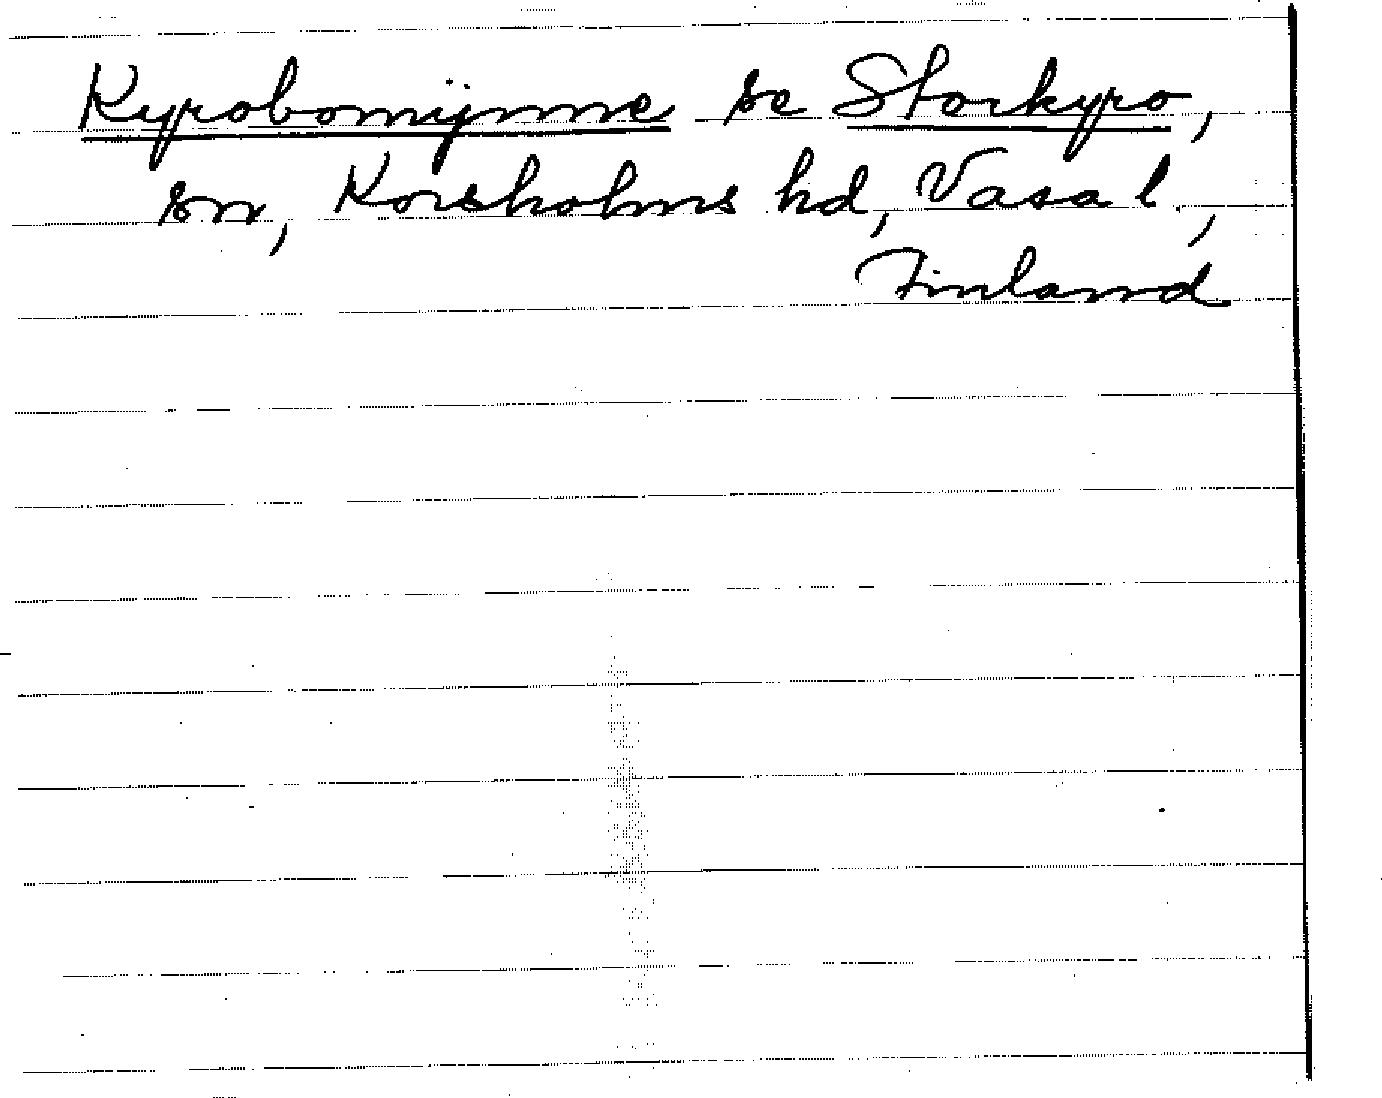 Kyrobomynne se Storkyro,
sn, Korsholms hd, Vasa l,
Finland